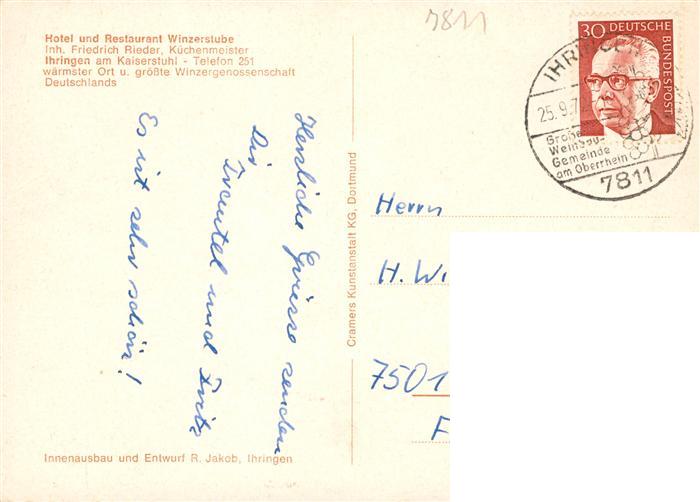 Hotel und Restaurant Winzerstube
Inh. Friedrich Rieder, Küchenmeister
Ihringen am Kaiserstuhl - Telefon 251
wärmster Ort u. größte Winzergenossenschaft
Deutschlands
Herzliche Grüsse senden
Dir
Trautel und Fritz
Es ist sehr schön!
Innenausbau und Entwurf R. Jakob, Ihringen
Cramers Kunstanstalt KG, Dortmund
7811
30 DEUTSCHE
BUNDESPOST
25.9.7
Große
Weinbau-
Gemeinde
am Oberrhein
7811
Herrn
H. Wi
7501
F